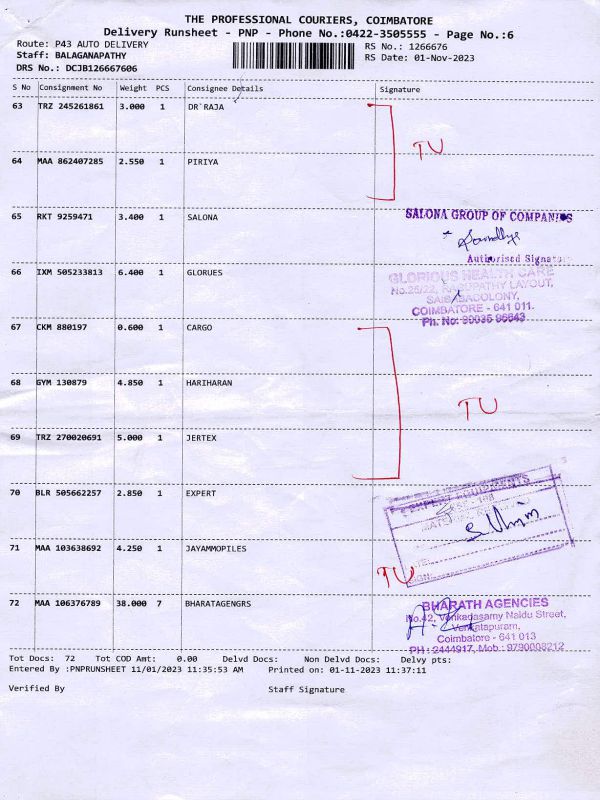 THE PROFESSIONAL COURIERS, COIMBATORE
Delivery Runsheet - PNP - Phone No.:0422-3505555 - Page No.:6
Route: P43 AUTO DELIVERY RS No.: 1266676
Staff: BALAGANAPATHY RS Date: 01-Nov-2023
DRS No.: DCJB126667606
S No Consignment No Weight PCS Consignee Details Signature
63 TRZ 245261861 3.000 1 DR`RAJA
TU
64 MAA 862407285 2.550 1 PIRIYA
65 RKT 9259471 3.400 1 SALONA SALONA GROUP OF COMPANIES
Authorised Signatory
66 IXM 505233813 6.400 1 GLORUES GLORIOUS HEALTH CARE
No.25/22, LAYOUT,
SAIBABACOLONY,
COIMBATORE - 641 011.
Ph. No:
67 CKM 880197 0.600 1 CARGO
68 GYM 130879 4.850 1 HARIHARAN
TU
69 TRZ 270020691 5.000 1 JERTEX
70 BLR 505662257 2.850 1 EXPERT
71 MAA 103638692 4.250 1 JAYAMMOPILES
TU
72 MAA 106376789 38.000 7 BHARATAGENGRS BHARATH AGENCIES
No.42, Venkadasamy Naidu Street,
Venkatapuram,
Coimbatore - 641 013
PH : 2444917, Mob : 9790008212
Tot Docs: 72 Tot COD Amt: 0.00 Delvd Docs: Non Delvd Docs: Delvy pts:
Entered By :PNPRUNSHEET 11/01/2023 11:35:53 AM Printed on: 01-11-2023 11:37:11
Verified By Staff Signature